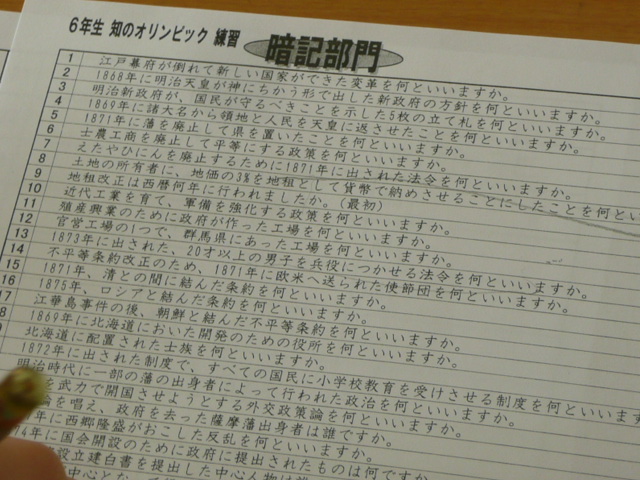 6年生 知のオリンピック 練習 暗記部門
1 江戸幕府が倒れて新しい国家ができた変革を何といいますか。
2 1868年に明治天皇が神にちかう形で出した新政府の方針を何といいますか。
3 明治新政府が、国民が守るべきことを示した5枚の立て札を何といいますか。
4 1869年に諸大名から領地と人民を天皇に返させたことを何といいますか。
5 1871年に藩を廃止して県を置いたことを何といいますか。
6 士農工商を廃止して平等にする政策を何といいますか。
7 えたやひにんを廃止するために1871年に出された法令を何といいますか。
8 土地の所有者に、地価の3%を地租として貨幣で納めさせることにしたことを何とい
9 地租改正は西暦何年に行われましたか。(最初)
10 近代工業を育て、軍備を強化する政策を何といいますか。
11 殖産興業のために政府が作った工場を何といいますか。
12 官営工場の1つで、群馬県にあった工場を何といいますか。
13 1873年に出された、20才以上の男子を兵役につかせる法令を何といいますか。
14 不平等条約改正のため、1871年に欧米へ送られた使節団を何といいますか。
15 1871年、清との間に結んだ条約を何といいますか。
16 1875年、ロシアと結んだ条約を何といいますか。
17 江華島事件の後、朝鮮と結んだ不平等条約を何といいますか。
8 1869年に北海道においた開発のための役所を何といいますか。
北海道に配置された士族を何といいますか。
1872年に出された制度で、すべての国民に小学校教育を受けさせる制度を何といいます
明治時代に一部の藩の出身者によって行われた政治を何といいますか。
を武力で開国させようとする外交政策論を何といいますか。
を唱え、政府を去った薩摩藩出身者は誰ですか。
年に西郷隆盛がおこした反乱を何といいますか。
74年に国会開設のために政府に提出されたものは何ですか。
設立建白書を提出した中心人物は
中心となって